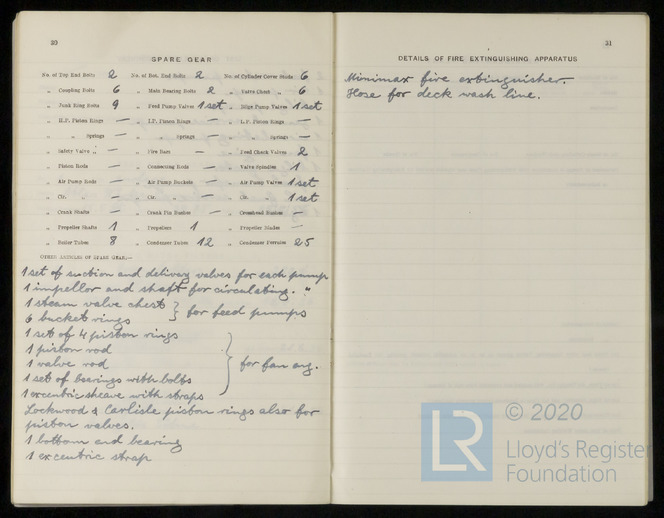 20
SPARE GEAR
No. of Top End Bolts 2 No. of Bot. End Bolts 2 No. of Cylinder Cover Studs 6
„ Coupling Bolts 6 „ Main Bearing Bolts 2 „ Valve Chest „ 6
„ Junk Ring Bolts 9 „ Feed Pump Valves 1 set „ Bilge Pump Valves 1 set
„ H.P. Piston Rings — „ I.P. Piston Rings — „ L.P. Piston Rings —
„ „ Springs — „ „ Springs — „ „ Springs —
„ Safety Valve „ — „ Fire Bars — „ Feed Check Valves 2
„ Piston Rods — „ Connecting Rods — „ Valve Spindles 1
„ Air Pump Rods — „ Air Pump Buckets — „ Air Pump Valves 1 set
„ Cir. „ — „ Cir. „ — „ Cir. „ 1 set
„ Crank Shafts — „ Crank Pin Bushes — „ Crosshead Bushes —
„ Propeller Shafts 1 „ Propellers 1 „ Propeller Blades —
„ Boiler Tubes 8 „ Condenser Tubes 12 „ Condenser Ferrules 25
OTHER ARTICLES OF SPARE GEAR:—
1 set of suction and delivery valves for each pump
1 impellor and shaft for circulating. "
1 steam valve chest } for feed pumps
6 bucket rings
1 set of 4 piston rings
1 piston rod
1 valve rod } for fan eng.
1 set of bearings with bolts
1 excentric sheave with straps
Lockwood & Carlisle piston rings also for
piston valves.
1 bottom end bearing
1 excentric strap
21
DETAILS OF FIRE EXTINGUISHING APPARATUS
Minimax fire extinguisher.
Hose for deck wash line.
LR
© 2020
Lloyd's Register
Foundation